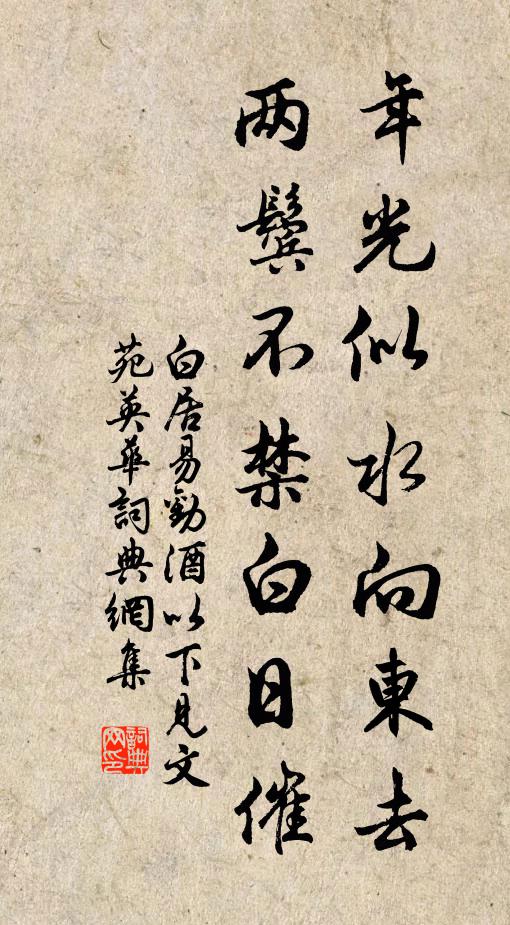 年光似水向東去
两鬓不禁白日催
白居易勸酒以下見文
苑英華詞典網集
詞典
网印